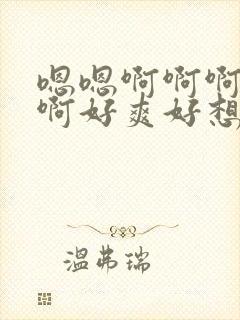 嗯嗯啊啊啊
啊好爽好想
温弗瑞